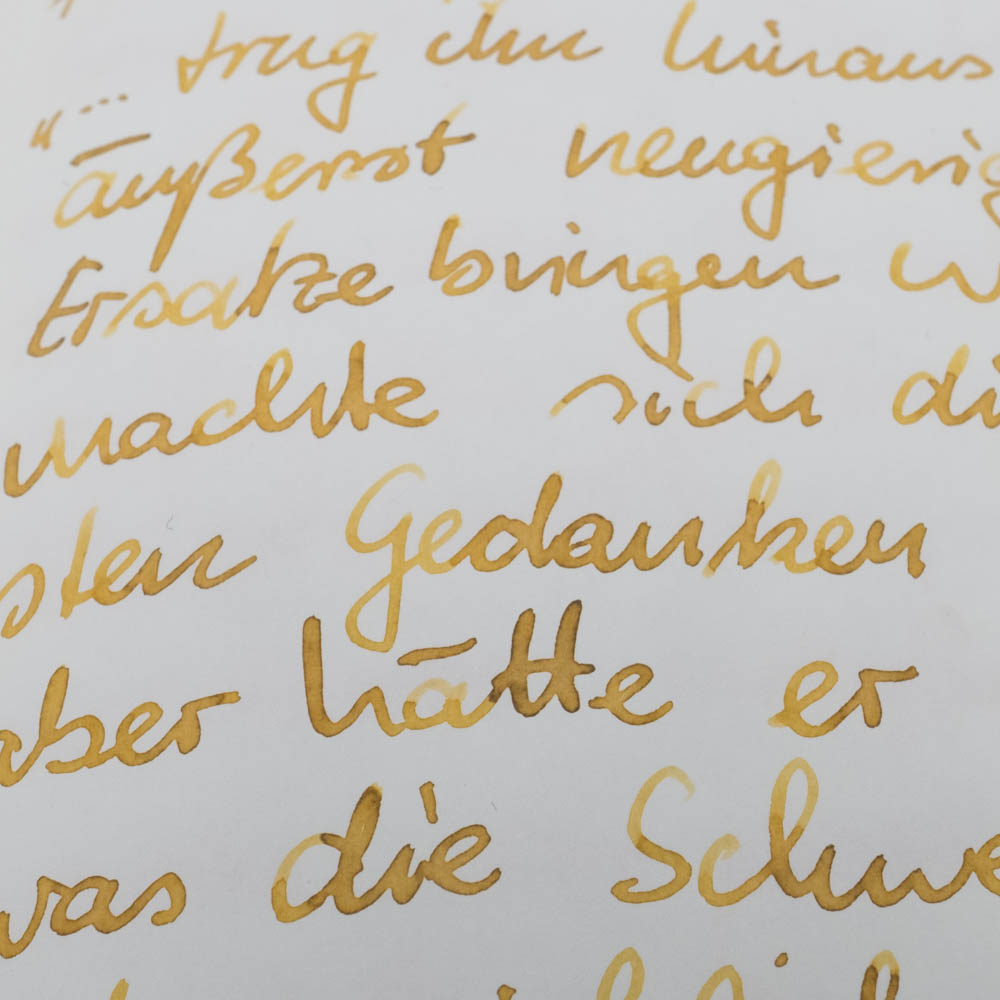 "... trug ihn hinaus
äußerst neugierig
Ersatze bringen w
machte sich di
sten Gedanken
aber hätte er
was die Schwe